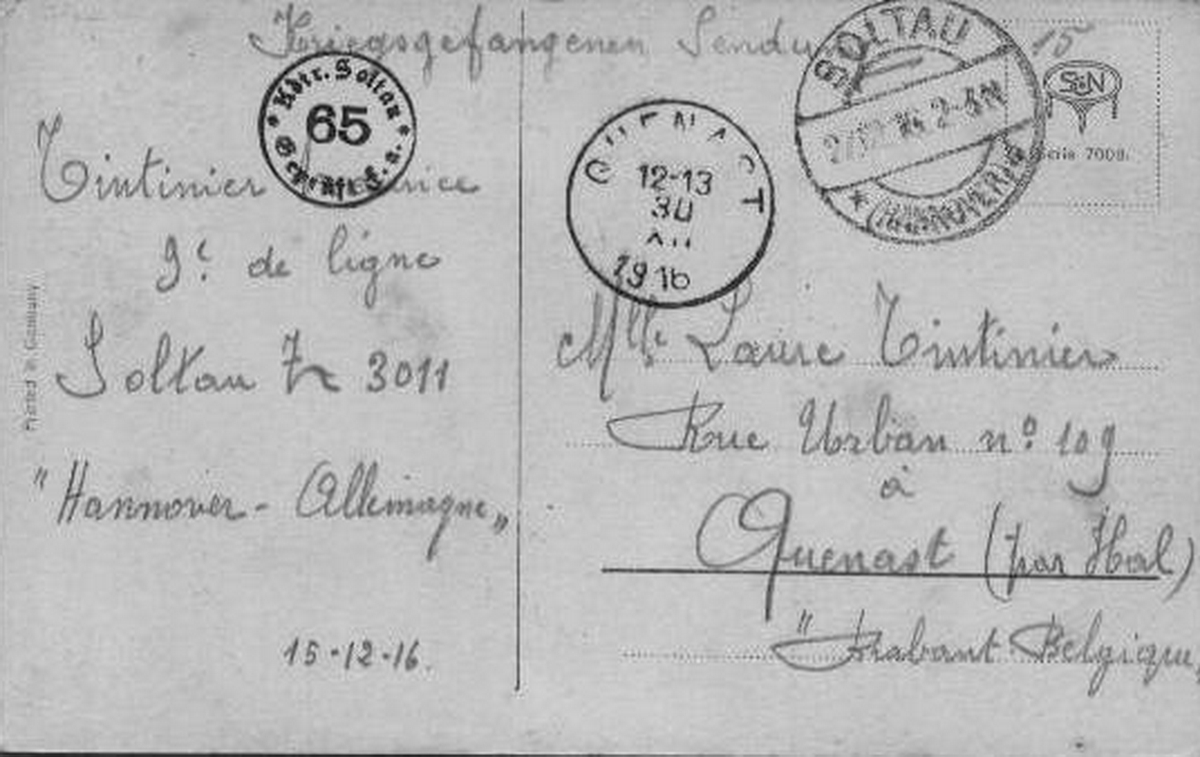 Kriegsgefangenen Sendu
15
Kdtr. Soltau
65
Geprüft F.a.
SOLTAU
2-4N
(HANNOVER)
S&N
Serie 7009.
QUENAST
12-13
30
XII
1916
Tintinier
9e de ligne
Soltau 3011
"Hannover - Allemagne"
15-12-16.
Printed in Germany
Mlle Laure Tintinier
Rue Urban no 109
à
Quenast (par Hal)
"Brabant Belgique"